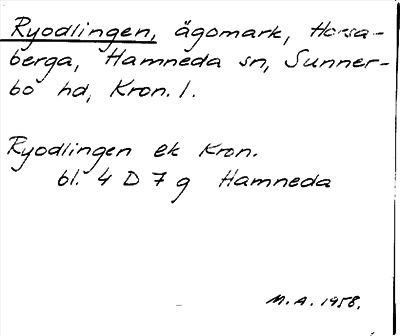 Ryodlingen, ägomark, Horsa-
berga, Hamneda sn, Sunner-
bo hd, Kron. l.
Ryodlingen ek Kron.
bl. 4 D 7 g Hamneda
M.A. 1958.